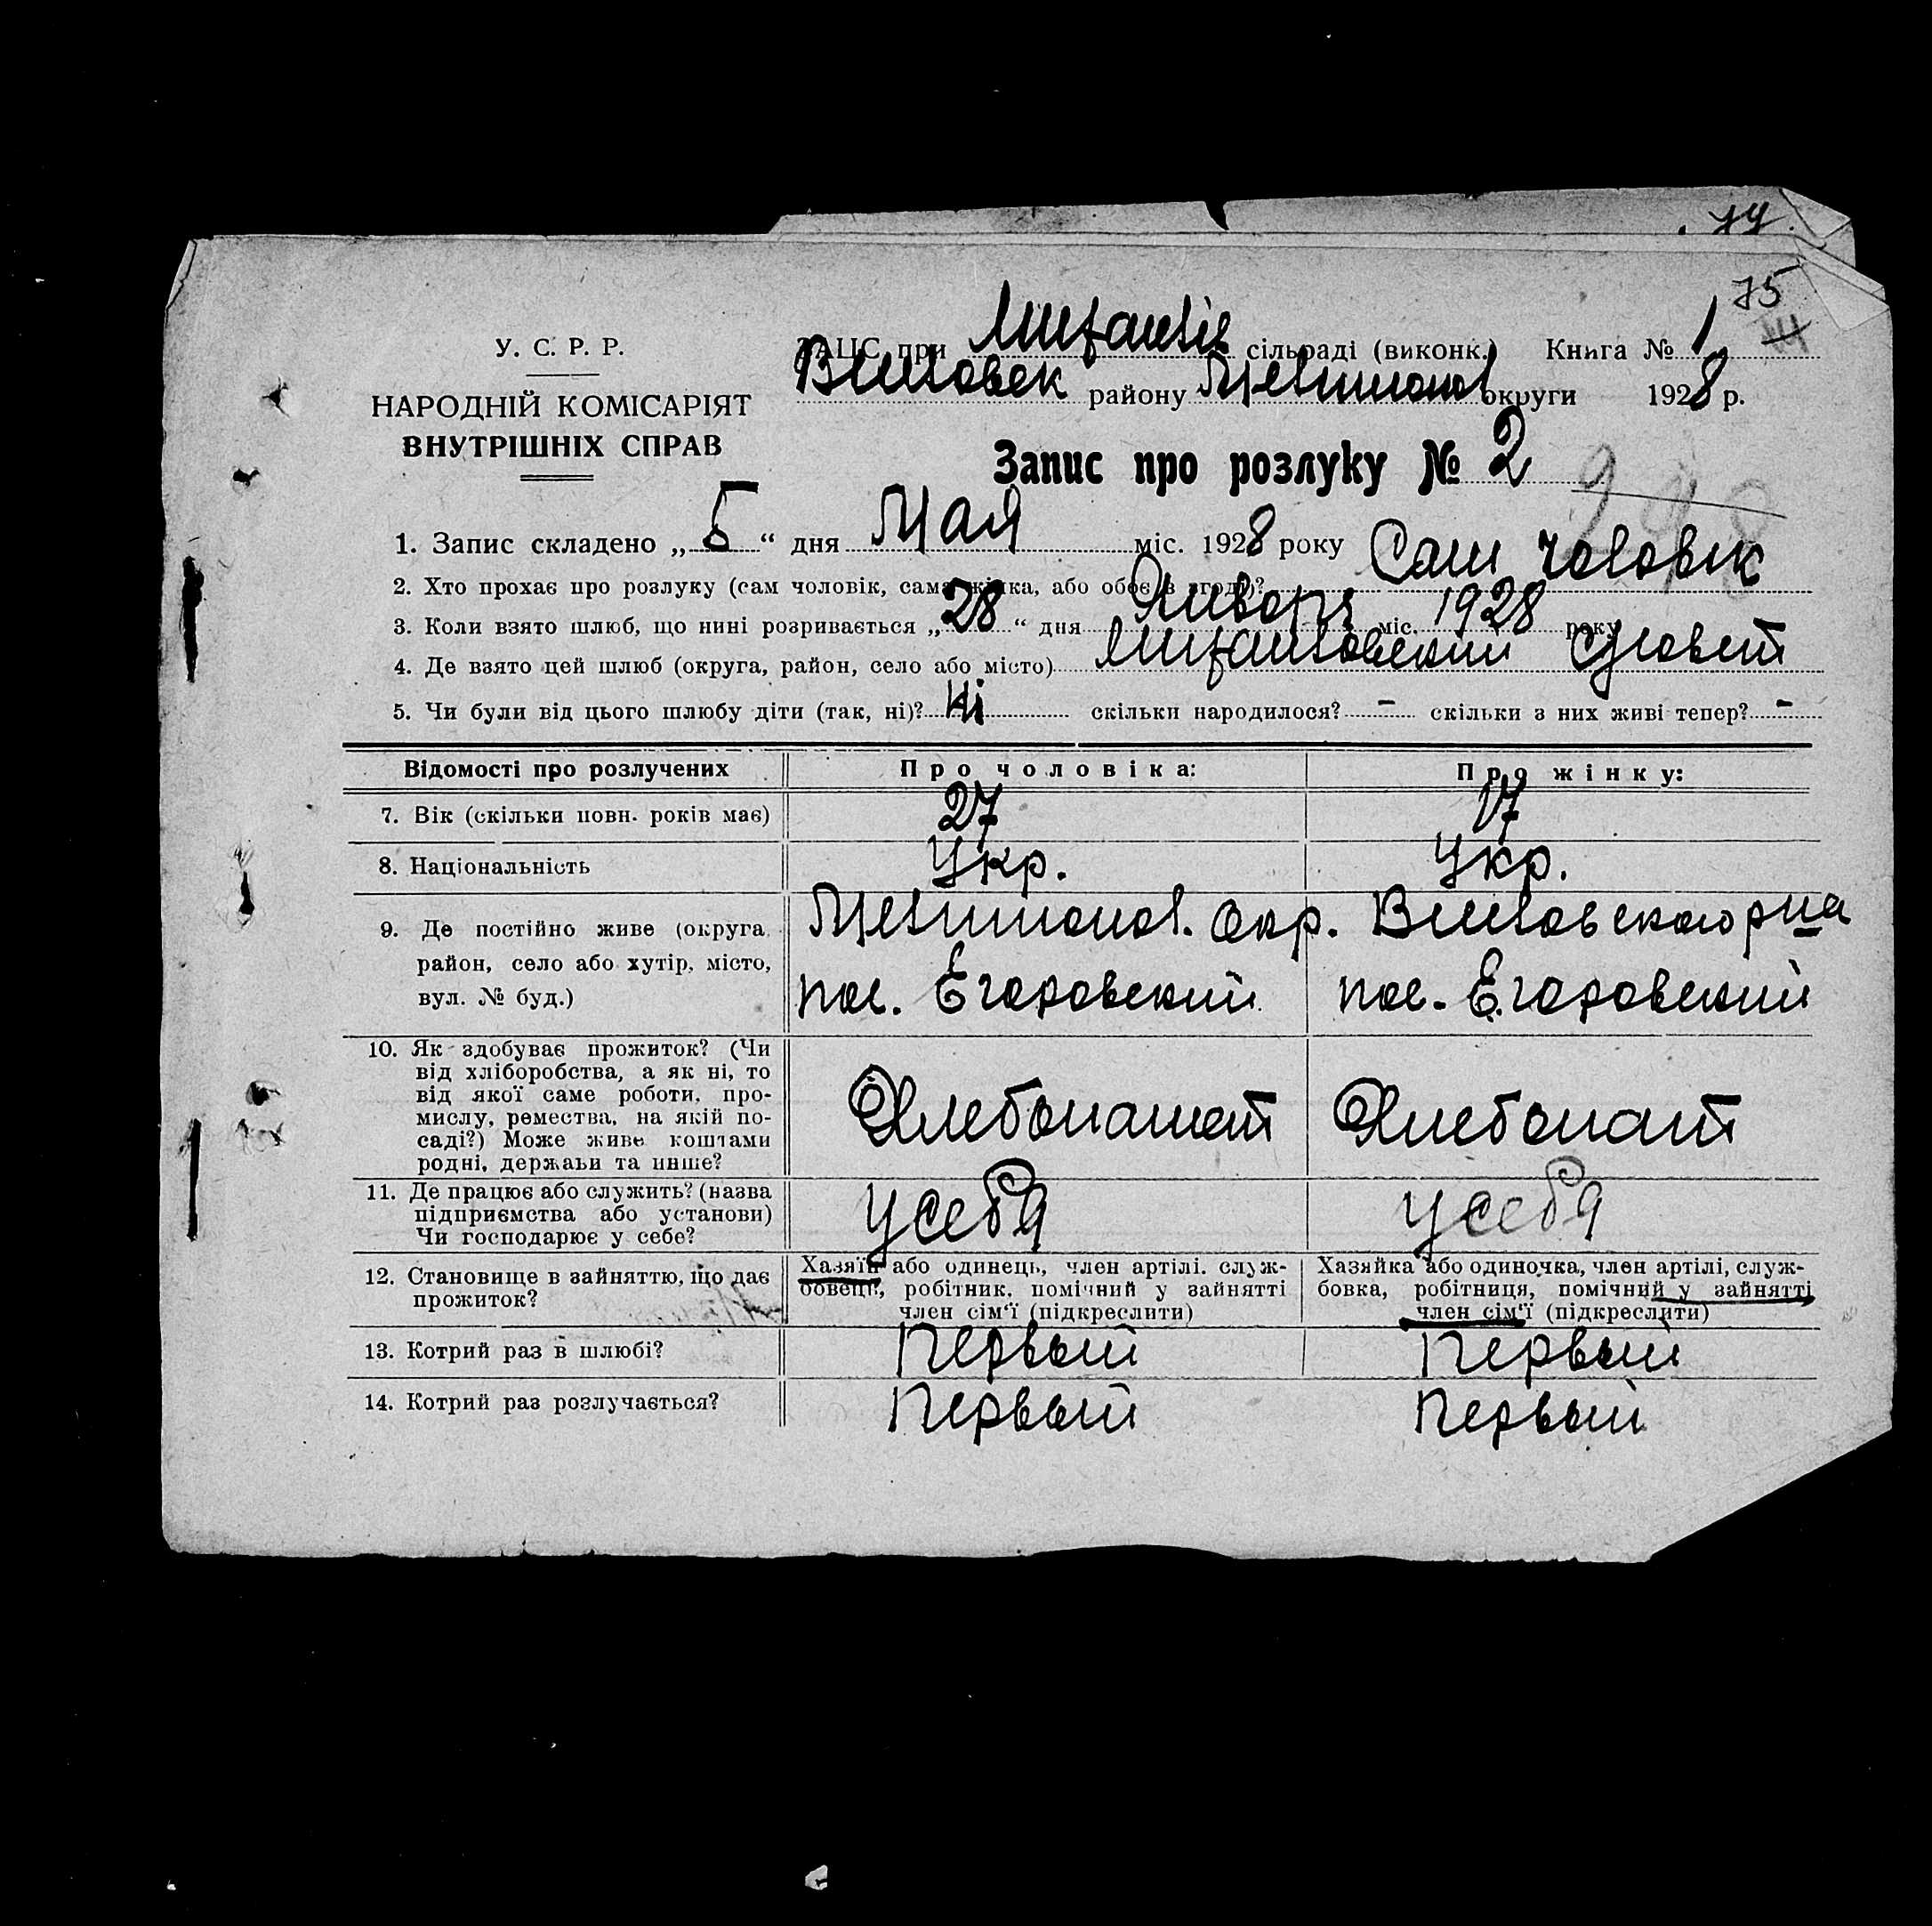 74
75
У. С. Р. Р.
НАРОДНІЙ КОМІСАРІЯТ
ВНУТРІШНІХ СПРАВ
ЗАЦС при сільраді (виконк.) Книга № 1
району округи 1928 р.
Запис про розлуку № 2
1. Запис складено „ 5 “ дня Мая міс. 1928 року
2. Хто прохає про розлуку (сам чоловік, сама жінка, або обоє в згоді)? Сам чоловік
3. Коли взято шлюб, що нині розривається „ 28 “ дня Января міс. 1928 року
4. Де взято цей шлюб (округа, район, село або місто)
5. Чи були від цього шлюбу діти (так, ні)? Ні скільки народилося? - скільки з них живі тепер? -
Відомості про розлучених Про чоловіка: Про жінку:
7. Вік (скільки повн. років має) 27 17
8. Національність Укр. Укр.
9. Де постійно живе (округа, район, село або хутір, місто, вул. № буд.)
Окр.
пос. Егоровский пос. Егоровский
10. Як здобуває прожиток? (Чи
від хліборобства, а як ні, то
від якої саме роботи, про-
мислу, ремества, на якій по-
саді?) Може живе коштами
родні, держави та инше?
Хлебопашест Хлебопаш
11. Де працює або служить? (назва
підприємства або установи)
Чи господарює у себе?
У себя У себя
12. Становище в зайняттю, що дає
прожиток?
Хазяїн або одинець, член артілі, служ-
бовець, робітник, помічний у зайнятті
член сім'ї (підкреслити)
Хазяйка або одиночка, член артілі, служ-
бовка, робітниця, помічний у зайнятті
член сім'ї (підкреслити)
13. Котрий раз в шлюбі? Первый Первый
14. Котрий раз розлучається? Первый Первый